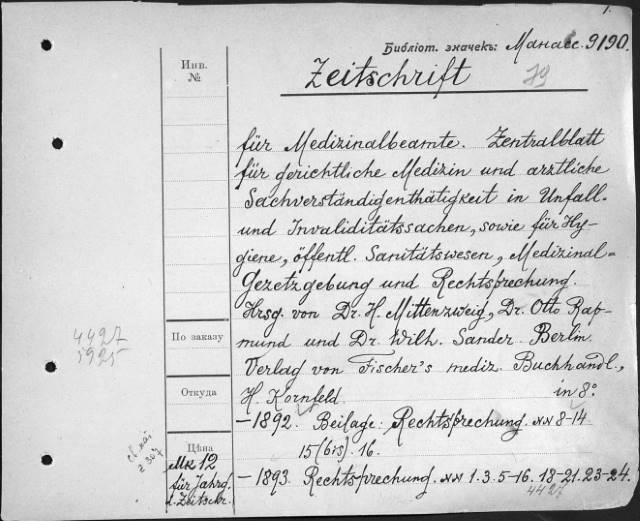 1.
Библіот. значекъ: Манасс. 9190.
Инв.
№
Zeitschrift
79
für Medizinalbeamte. Zentralblatt
für gerichtliche Medizin und arztliche
Sachverständigenthätigkeit in Unfall-
und Invaliditätssachen, sowie für Hy-
giene, öffentl. Sanitätswesen, Medizinal-
Gezetzgebung und Rechtsprechung.
Hrsg. von Dr. H. Mittenzweig, Dr. Otto Rap-
mund und Dr. Wilh. Sander. Berlin.
4427
5925
По заказу
Verlag von Fischer's mediz. Buchhandl.,
Откуда
H. Kornfeld. in 8°.
— 1892. Beilage: Rechtsprechung. NN 8-14
15 (bis). 16.
Цѣна
Mk 12
für Jahrg.
d. Zeitschr.
— 1893. Rechtsprechung. NN 1. 3. 5-16. 18-21. 23-24.
4427